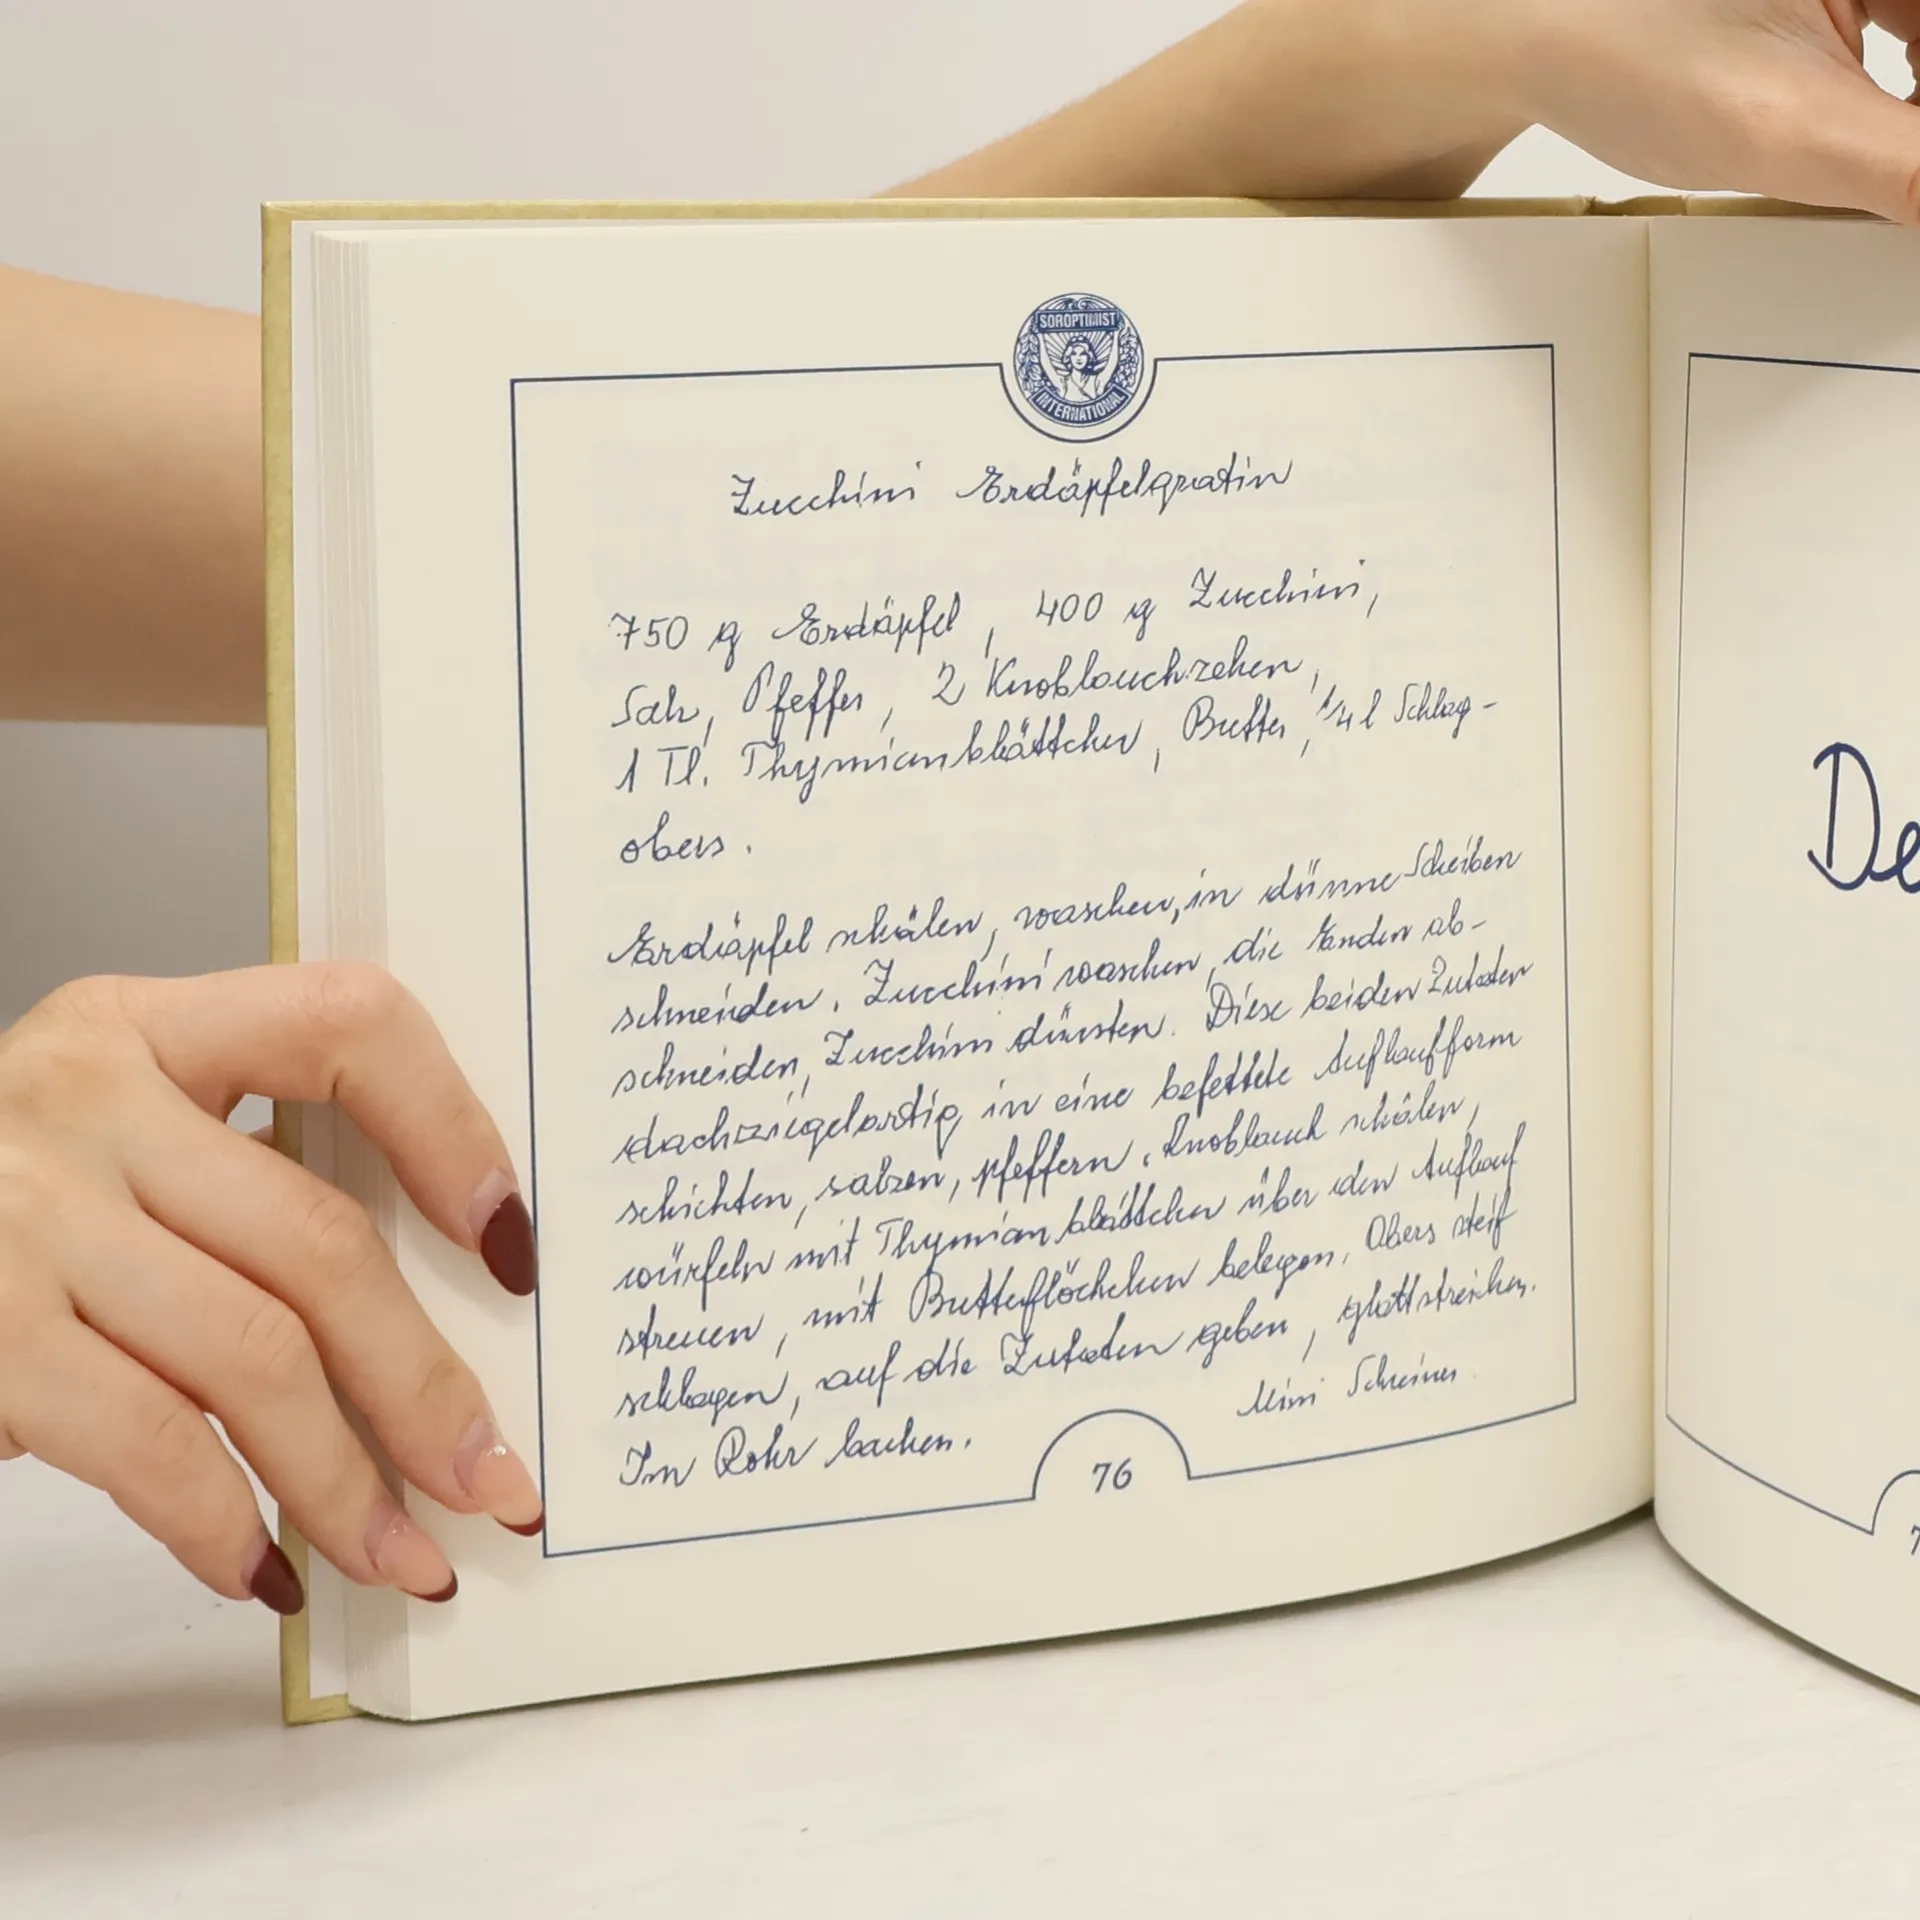 SOROPTIMIST
INTERNATIONAL
Zucchini Erdäpfelgratin
750 g Erdäpfel, 400 g Zucchini,
Salz, Pfeffer, 2 Knoblauchzehen,
1 Tl. Thymianblättchen, Butter, 1/4 l Schlag-
obers.
Erdäpfel schälen, waschen, in dünne Scheiben
schneiden. Zucchini waschen, die Enden ab-
schneiden, Zucchini dünsten. Diese beiden Zutaten
dachziegelartig in eine befettete Auflaufform
schichten, salzen, pfeffern. Knoblauch schälen,
würfeln mit Thymianblättchen über den Auflauf
streuen, mit Butterflöckchen belegen. Obers steif
schlagen, auf die Zutaten geben, glattstreichen.
Im Rohr backen.
Mimi Schreiner
76
De
7